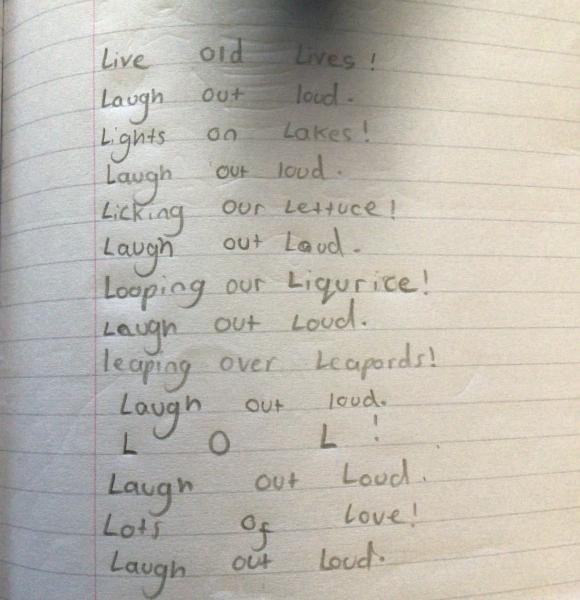 Live old Lives!
Laugh out loud.
Lights on Lakes!
Laugh out loud.
Licking our Lettuce!
Laugh out Loud.
Looping our Liqurice!
Laugh out Loud.
leaping over Leapords!
Laugh out loud.
L O L !
Laugh out Loud.
Lots of Love!
Laugh out Loud.